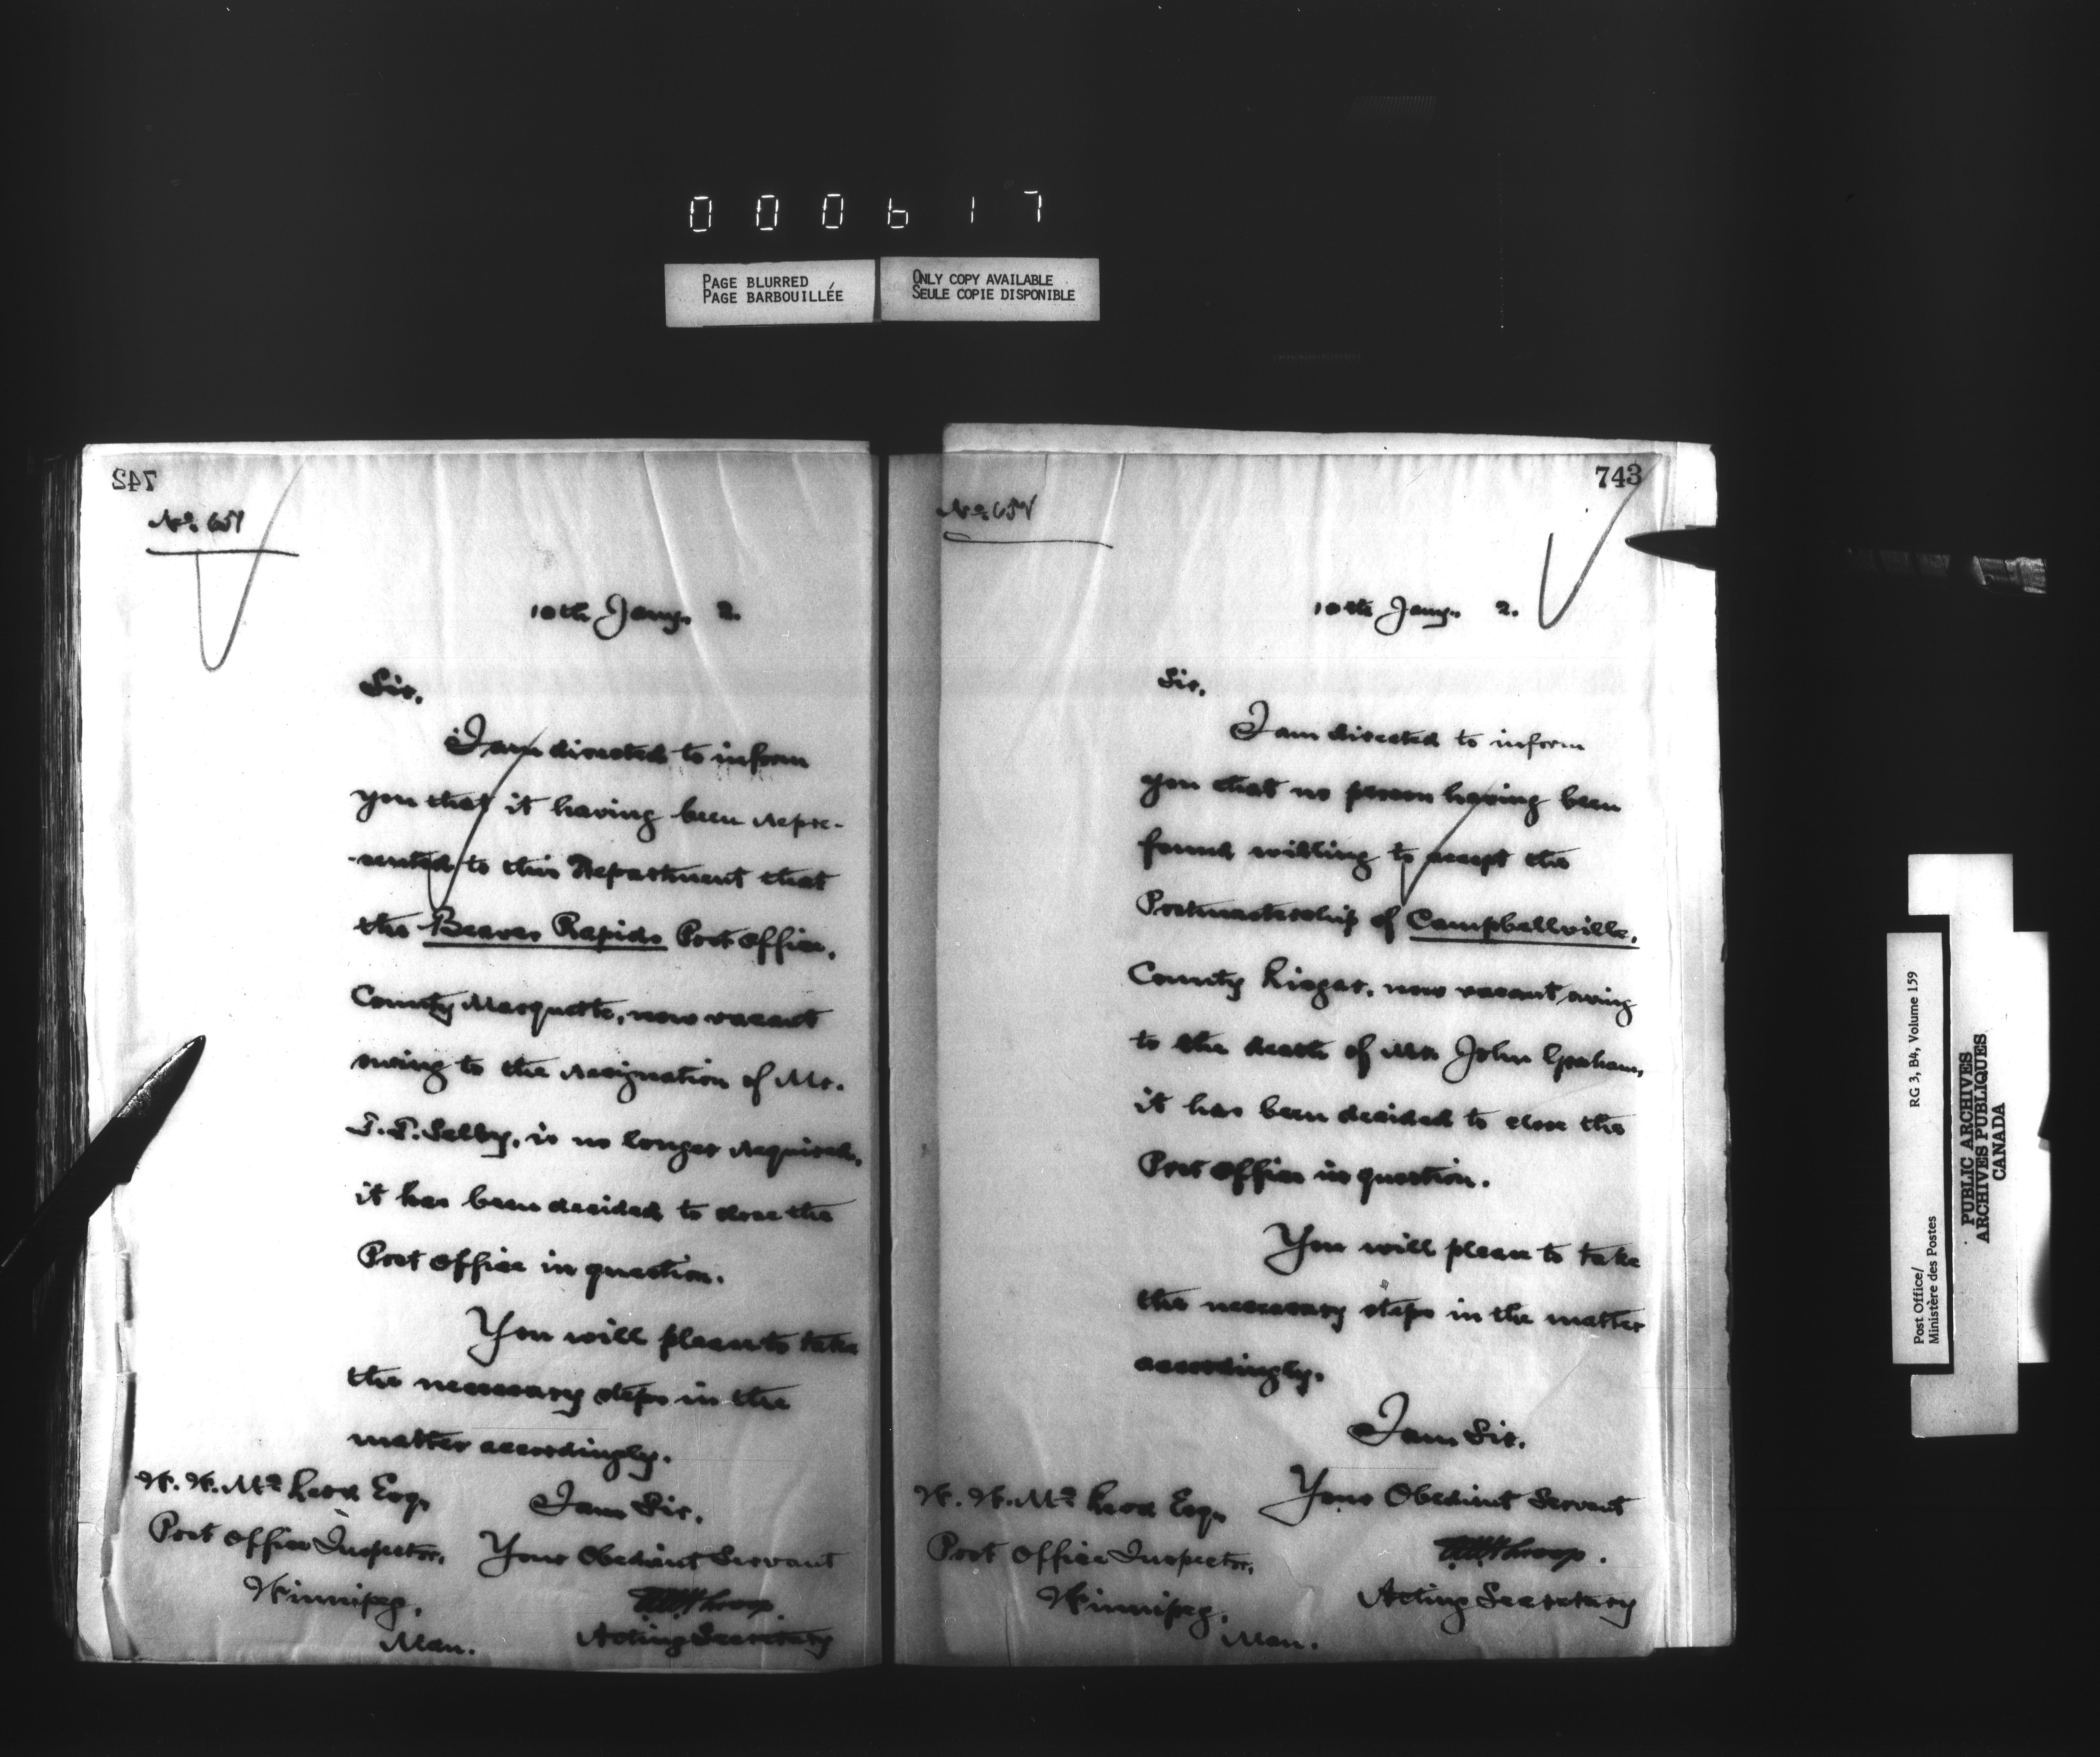 000617
PAGE BLURRED
PAGE BARBOUILLÉE
ONLY COPY AVAILABLE
SEULE COPIE DISPONIBLE
742
No.
10th Jany. 2.
Sir,
I am directed to inform
you that it having been repre-
-sented to this Department that
the Beaver Rapids Post Office,
County Marquette, now vacant
owing to the resignation of Mr.
Selby, is no longer required,
it has been decided to close the
Post Office in question.
You will please to take
the necessary steps in the
matter accordingly.
I am Sir,
Your Obedient Servant
Acting Secretary
W. W. McLeod Esq,
Post Office Inspector,
Winnipeg,
Man.
743
No.
10th Jany. 2.
Sir,
I am directed to inform
you that no person having been
found willing to accept the
Postmastership of Campbellville,
County Lisgar, now vacant owing
to the death of Mr. John Graham,
it has been decided to close the
Post Office in question.
You will please to take
the necessary steps in the matter
accordingly.
I am Sir,
Your Obedient Servant
Acting Secretary
W. W. McLeod Esq,
Post Office Inspector,
Winnipeg,
Man.
Post Office/
Ministère des Postes
RG 3, B4, Volume 159
PUBLIC ARCHIVES
ARCHIVES PUBLIQUES
CANADA